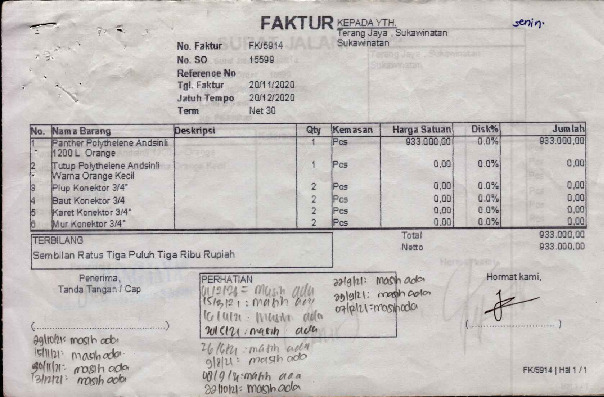 FAKTUR
KEPADA YTH.
Terang Jaya , Sukawinatan
Sukawinatan
senin.
No. Faktur FK/5914
No. SO 15599
Reference No
Tgl. Faktur 20/11/2020
Jatuh Tempo 20/12/2020
Term Net 30
No. Nama Barang Deskripsi Qty Kemasan Harga Satuan Disk% Jumlah
1 Panther Polythelene Andsinli 1 Pcs 933.000,00 0.0% 933.000,00
1200 L Orange
2 Tutup Polythelene Andsinli 1 Pcs 0,00 0.0% 0,00
Warna Orange Kecil
3 Plup Konektor 3/4" 2 Pcs 0,00 0.0% 0,00
4 Baut Konektor 3/4 2 Pcs 0,00 0.0% 0,00
5 Karet Konektor 3/4" 2 Pcs 0,00 0.0% 0,00
6 Mur Konektor 3/4" 2 Pcs 0,00 0.0% 0,00
TERBILANG
Sembilan Ratus Tiga Puluh Tiga Ribu Rupiah
Total 933.000,00
Netto 933.000,00
Penerima,
Tanda Tangan / Cap
PERHATIAN
masih ada
masih ada
masih ada
masih ada
masih ada
masih ada
masih ada
masih ada
masih ada
masih ada
masih ada
Hormat kami,
masih ada
masih ada
masih ada
masih ada
FK/5914 | Hal 1 / 1